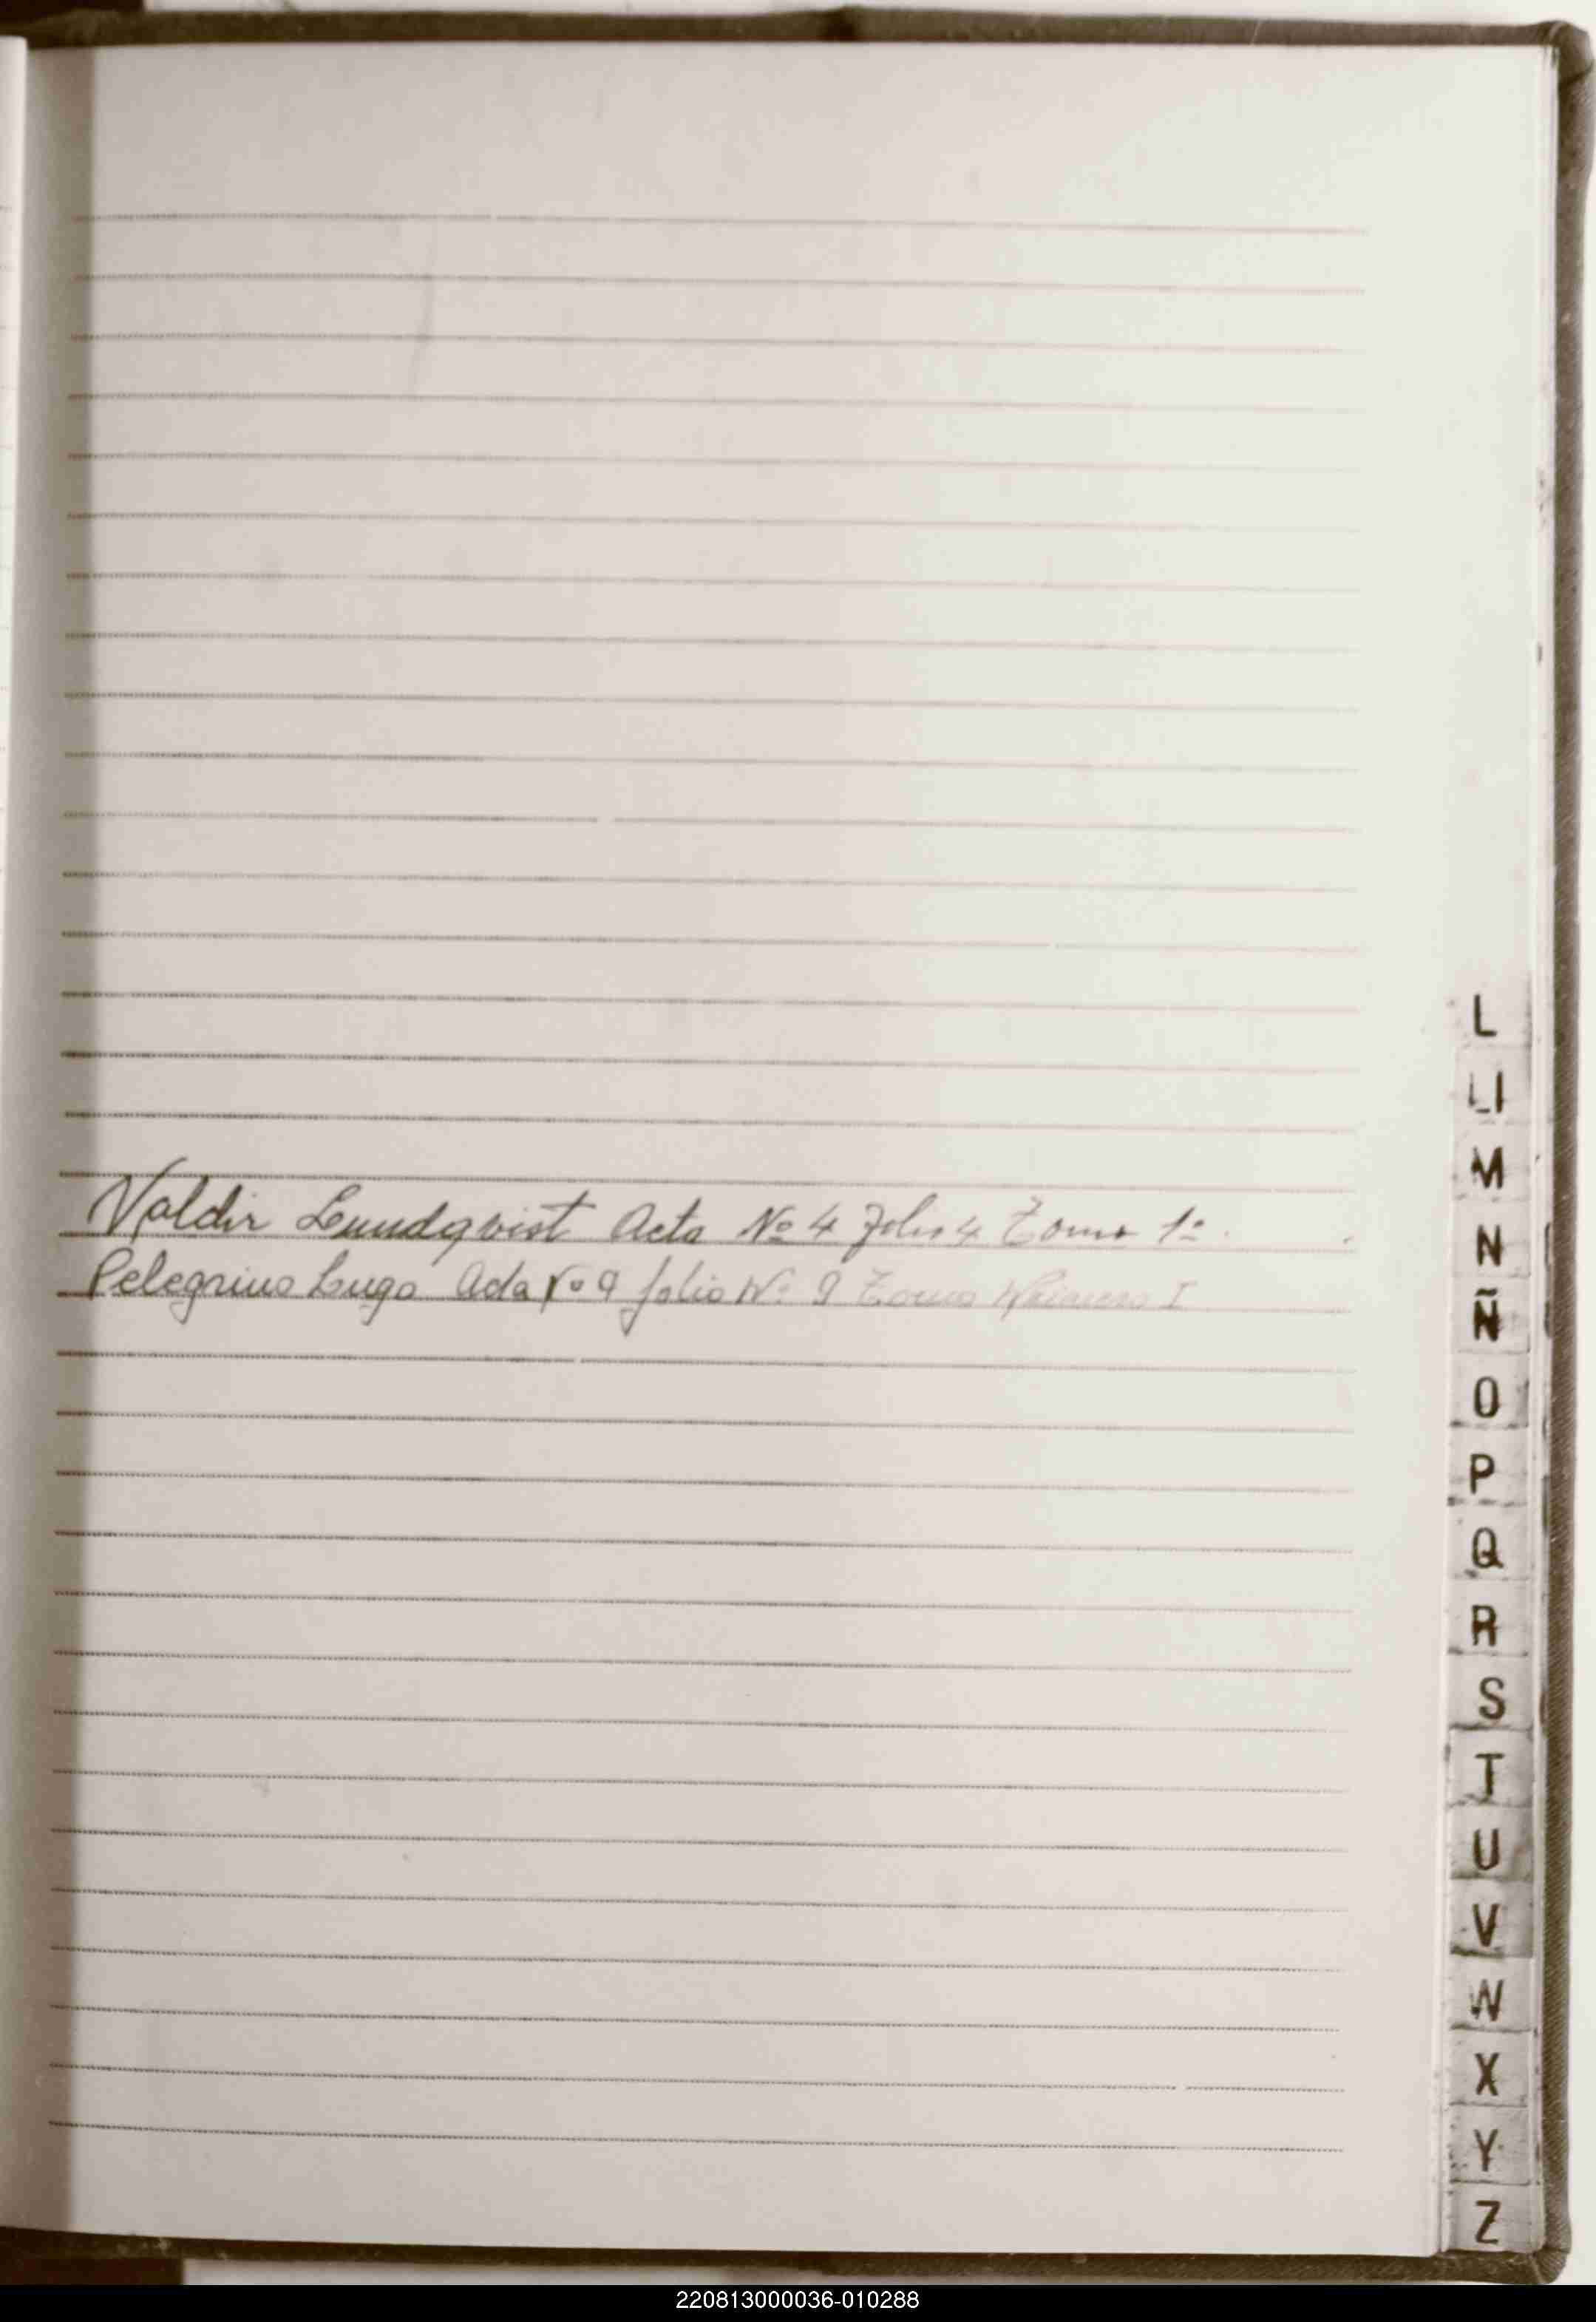 Valdir Lundqvist Acta Nº 4 folio 4 Tomo 1º.
Pelegrino Lugo Acta Nº 9 folio Nº 9 Tomo Primero I
L
Ll
M
N
Ñ
O
P
Q
R
S
T
U
V
W
X
Y
Z
220813000036-010288